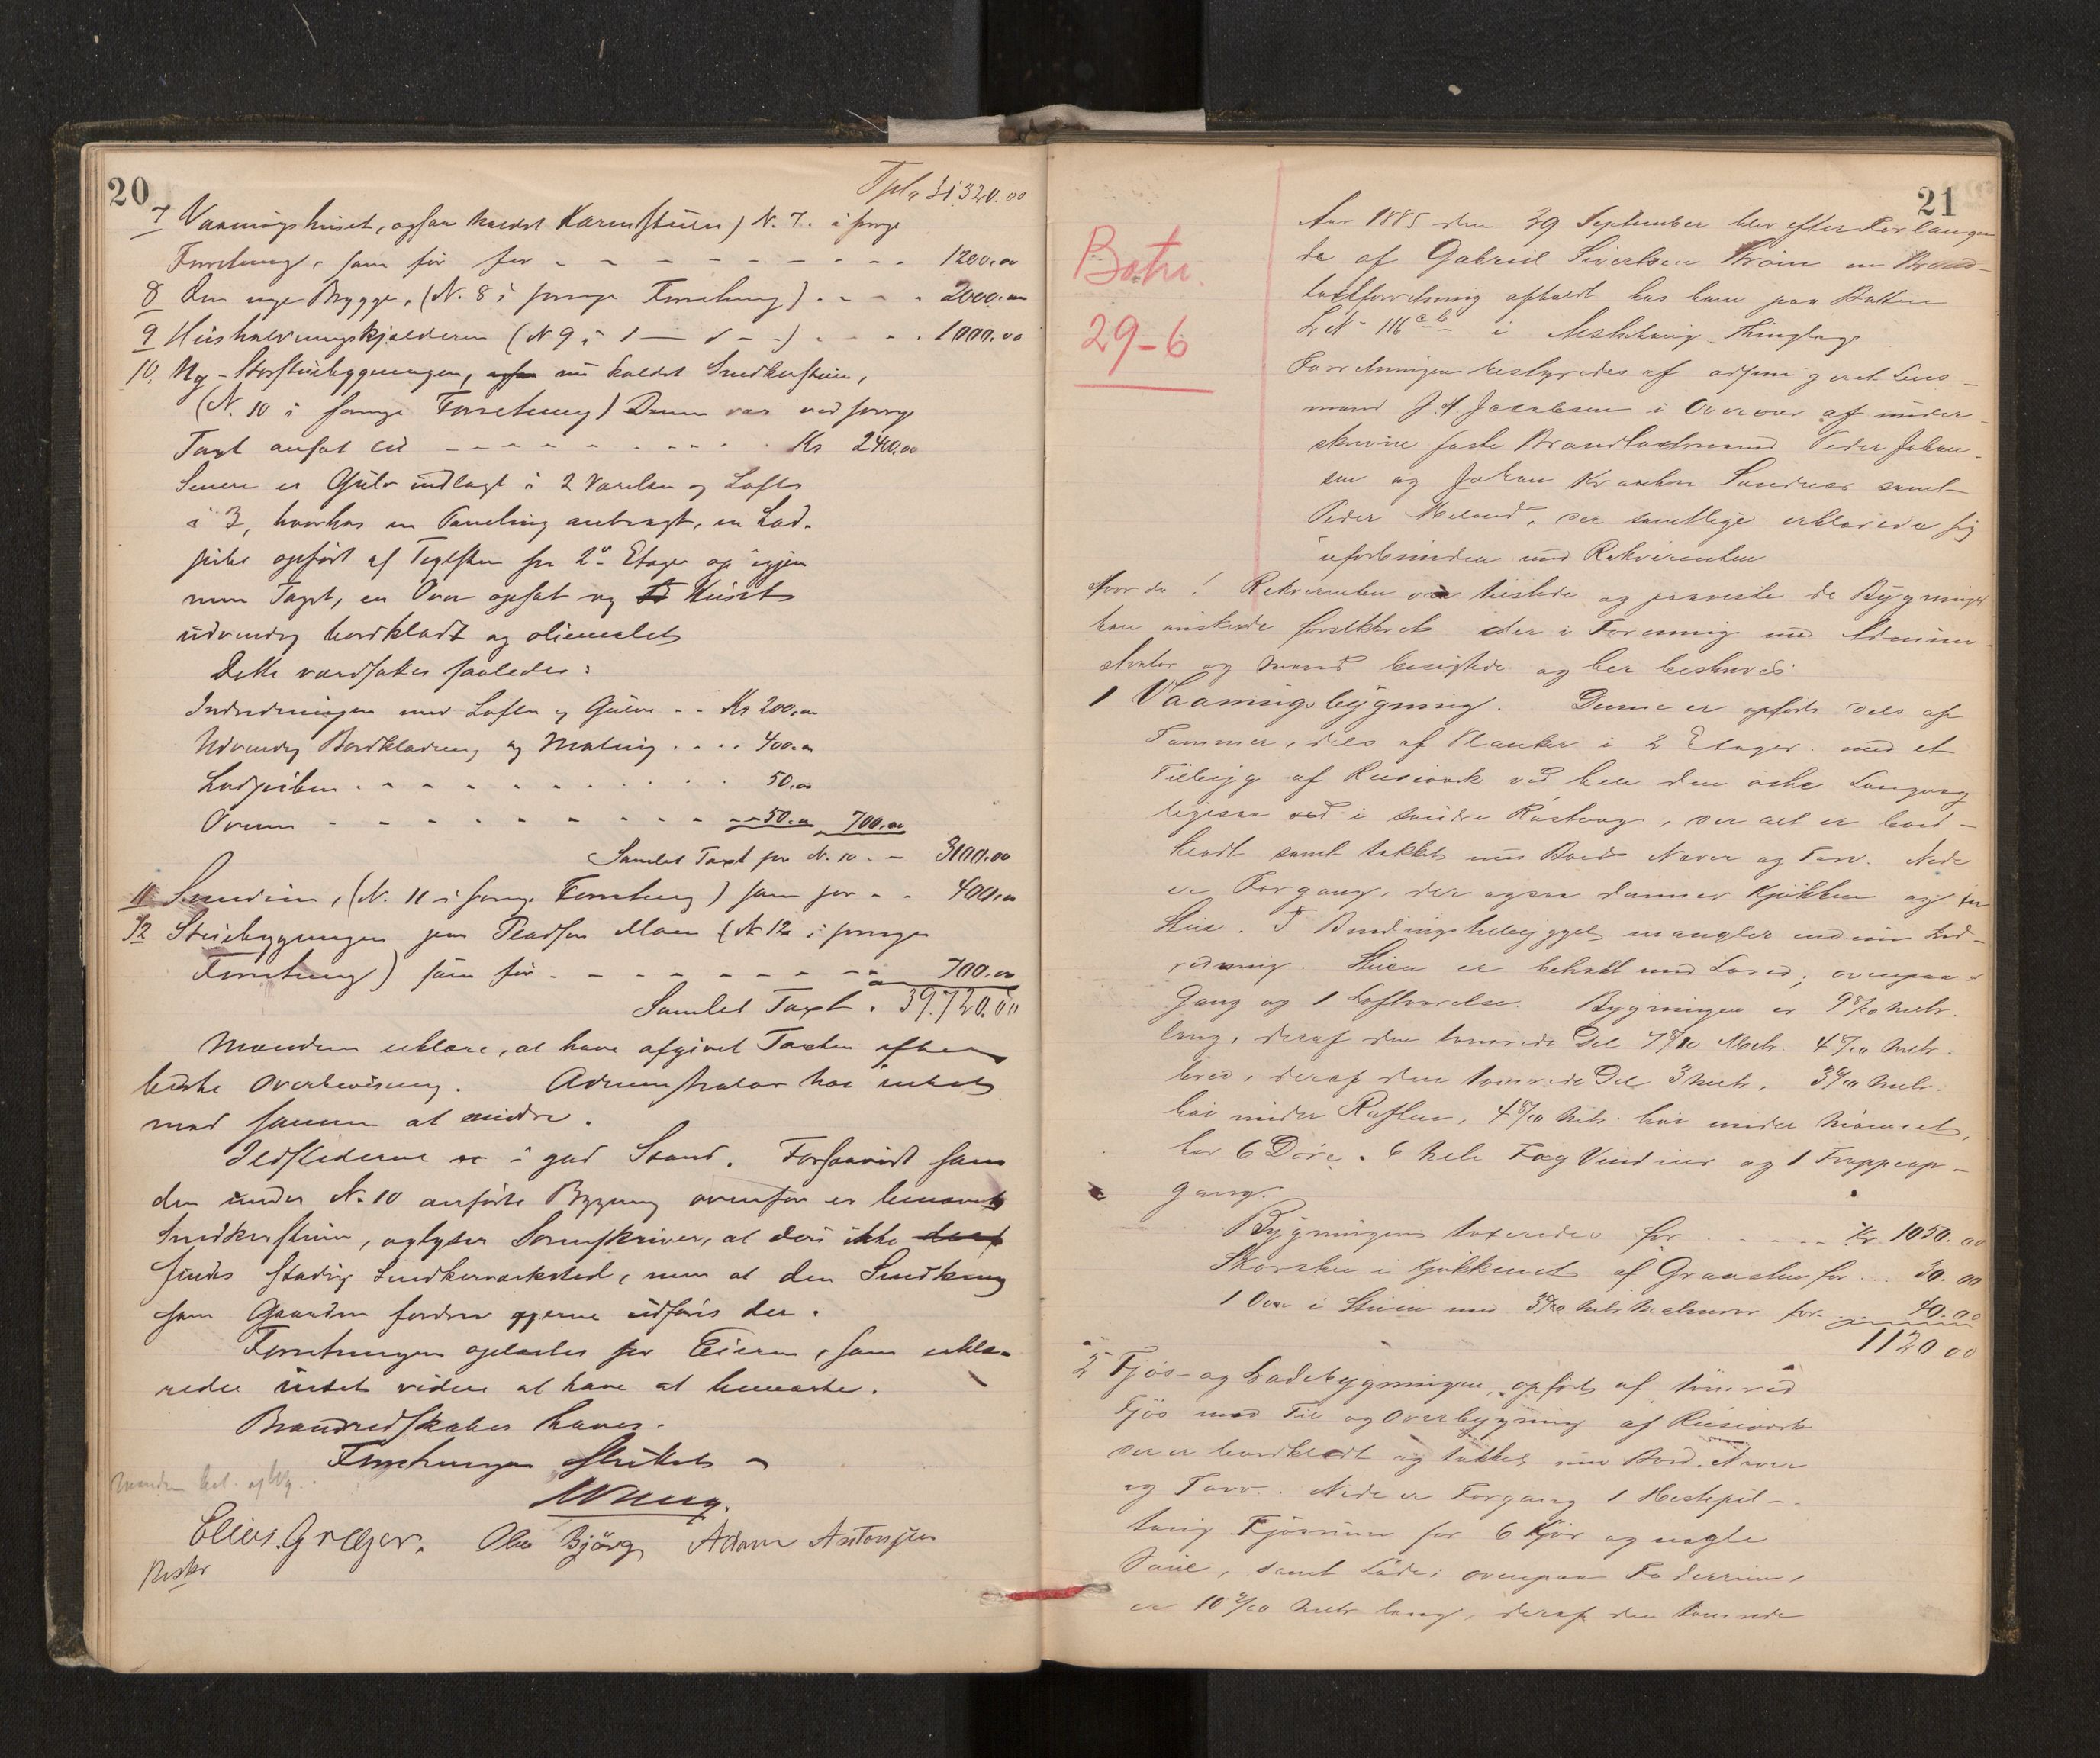 20
Tpt. 31320.00
7 Vaaningshuset, ogsaa kaldet Karmstuen) N. 7. i forrige
Forretning, som för for - - - - 1200.00
8 Den nye Brygge, (N. 8 i forrige Forretning) . - - - 2000.00
9 Husholdningskjælderen (N 9 i — " —) - - - 1000.00
10. Ny-Storstuebygningen, nu kaldet Snedkerstuen,
(N. 10 i forrige Forretning) Denne var ved forrige
Taxt ansat til - - - - Kr 2400.00
Senere er Gulv indlagt i 2 Værelser og Lofter
i 3, hvorhos en Paneling anbragt, en Lud-
pibe opført af Teglsten fra 2den Etage op igjen-
nem Taget, en Ovn opsat og Huset
udvendig bordklædt og oliemalet
Dette værdsattes saaledes:
Indredningen med Lofter og Gulve - - Kr 200.00
Udvendig Bordklædning og Maling . . . . 400.00
Ludpiben - - - - 50.00
Ovnen - - - - 50.00 700.00
Samlet Taxt for N. 10 - - 3100.00
11 Smedien, (N. 11 i forrige Forretning) som för - - 400.00
12 Stuebygningen paa Pladsen Moen (N 12 i forrige
Forretning) som för - - - - 700.00
Samlet Taxt . 39.720.00
Mændene erklære, at have afgivet Taxten efter
bedste Overbevisning. Administrator har intet
mod samme at erindre.
Ildstederne er i god Stand. Forsaavidt som
den under N. 10 anførte Bygning ovenfor er benævnt
Snedkerstuen, oplyser Sorenskriver, at der ikke
findes stadig Snedkerværksted, men at den Snedkring
som Gaarden fordrer gjerne udføres der.
Forretningen oplæstes for Eieren, som erklæ-
rede intet videre at have at bemærke.
Brandredskaber haves.
Forretningen sluttet
Elias. Græger. Ole Bjørg Adam Antonsen
21
Botn.
29-6
Aar 1885 den 29 September blev efter Forlangen-
de af Gabriel Sivertsen Strøm en Brand-
taxtforretning afholdt hos ham paa Botten
L No 116 a-b i Thinglag
Forretningen bestyredes af Lens-
mand J. A. Jacobsen i Overvær af under-
skrevne faste Brandtaxtmænd Peder Johan-
sen og Johan Sandnes samt
Peder Meland, der samtlige erklærede sig
uforbunden med Rekvirenten
Hvorda! Rekvirenten var tilstede og paaviste de Bygninger
han ønskede forsikkret der i Forening med Admini-
strator og Mænd besigtedes og her beskrives:
1 Vaaningsbygning. Denne er opført dels af
Tømmer, dels af Planker i 2 Etager. med et
Tilbyg af Reisværk ved hele den østre Langvæg
ligesaa i søndre Røstvæg, der alt er bord-
klædt samt tækket med Bord Næver og Torv. Nede
er Forgang, der ogsaa danner Kjøkken og en
Stue. I mangler endnu Ind-
redning. Stuen er ; ovenpaa
Gang og 1 Loftværelse. Bygningen er 9 8/10 Metr.
lang, deraf den tømrede Del 7 8/10 Metr. 4 8/10 Metr.
bred, deraf den tømrede Del 3 Metr. 3 Metr.
høi under Raften, 4 8/10 Metr. høi under Mønet,
har 6 Døre. 6 hele Fag Vinduer og 1 Trappeop-
gang.
Bygningen taxeredes for . - - - - Kr. 1050.00
Skorsten i Kjøkkenet af Graasten for ... 30.00
1 Ovn i Stuen med for 40.00
1120 00
2 Fjøs- og Ladebygningen, opført af tømret
Fjøs med Til og Overbygning af Reisværk
der er bordklædt og tækket med Bord. Næver
og Torv. Nede er Forgang 1 Hestespil-
toug Fjøsrum for 6 Kjør og nogle
Sauer, samt Lade; ovenpaa Foderrum,
er 10 Metr lang, deraf den tømrede